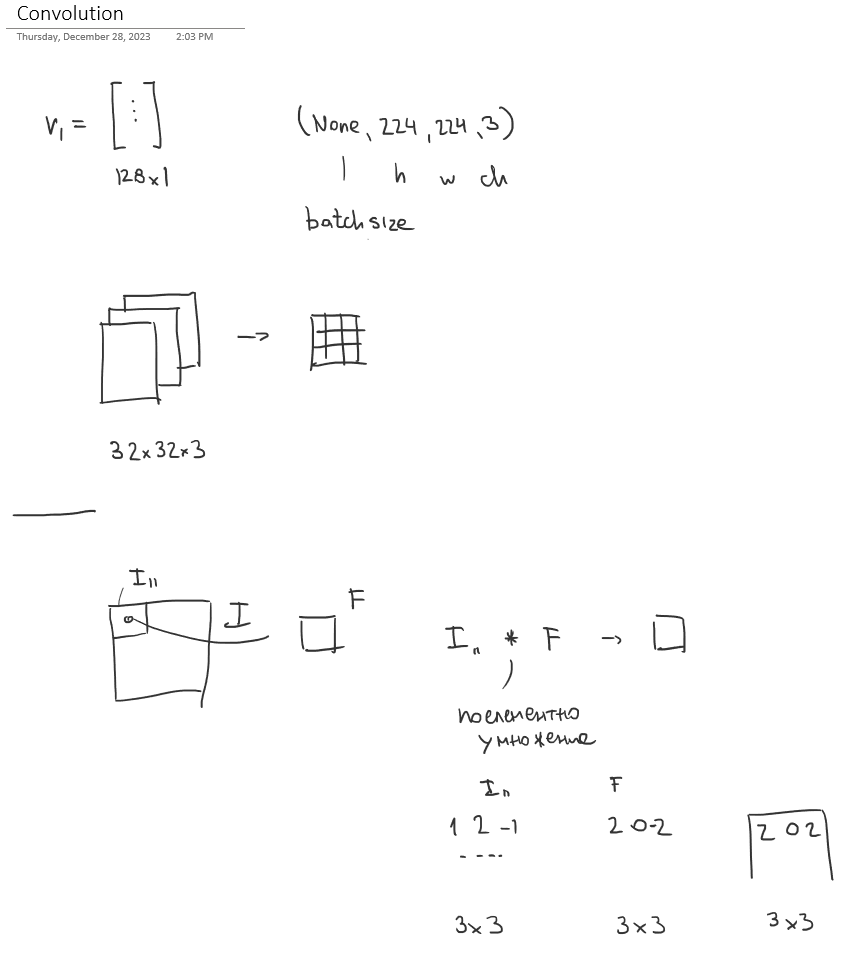 Convolution
Thursday, December 28, 2023 2:03 PM
V₁ = [⋮]
128x1
(None, 224, 224, 3)
h w ch
batch size
→
32x32x3
I₁₁
I
F
Iₙ * F →
поелементно
умножение
Iₙ F
1 2 -1 2 0 -2 2 0 2
....
3x3 3x3 3x3